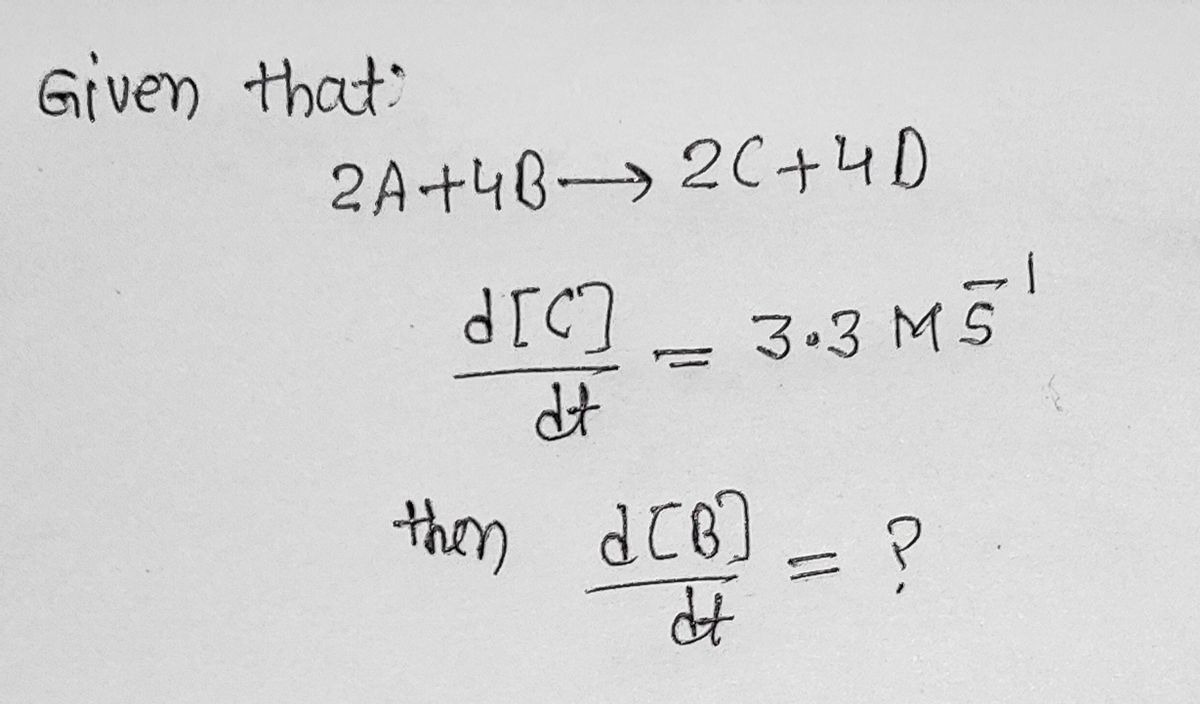 Given that:
2A+4B⟶2C+4D
d[C]/dt = 3.3 M S⁻¹
then d[B]/dt = ?